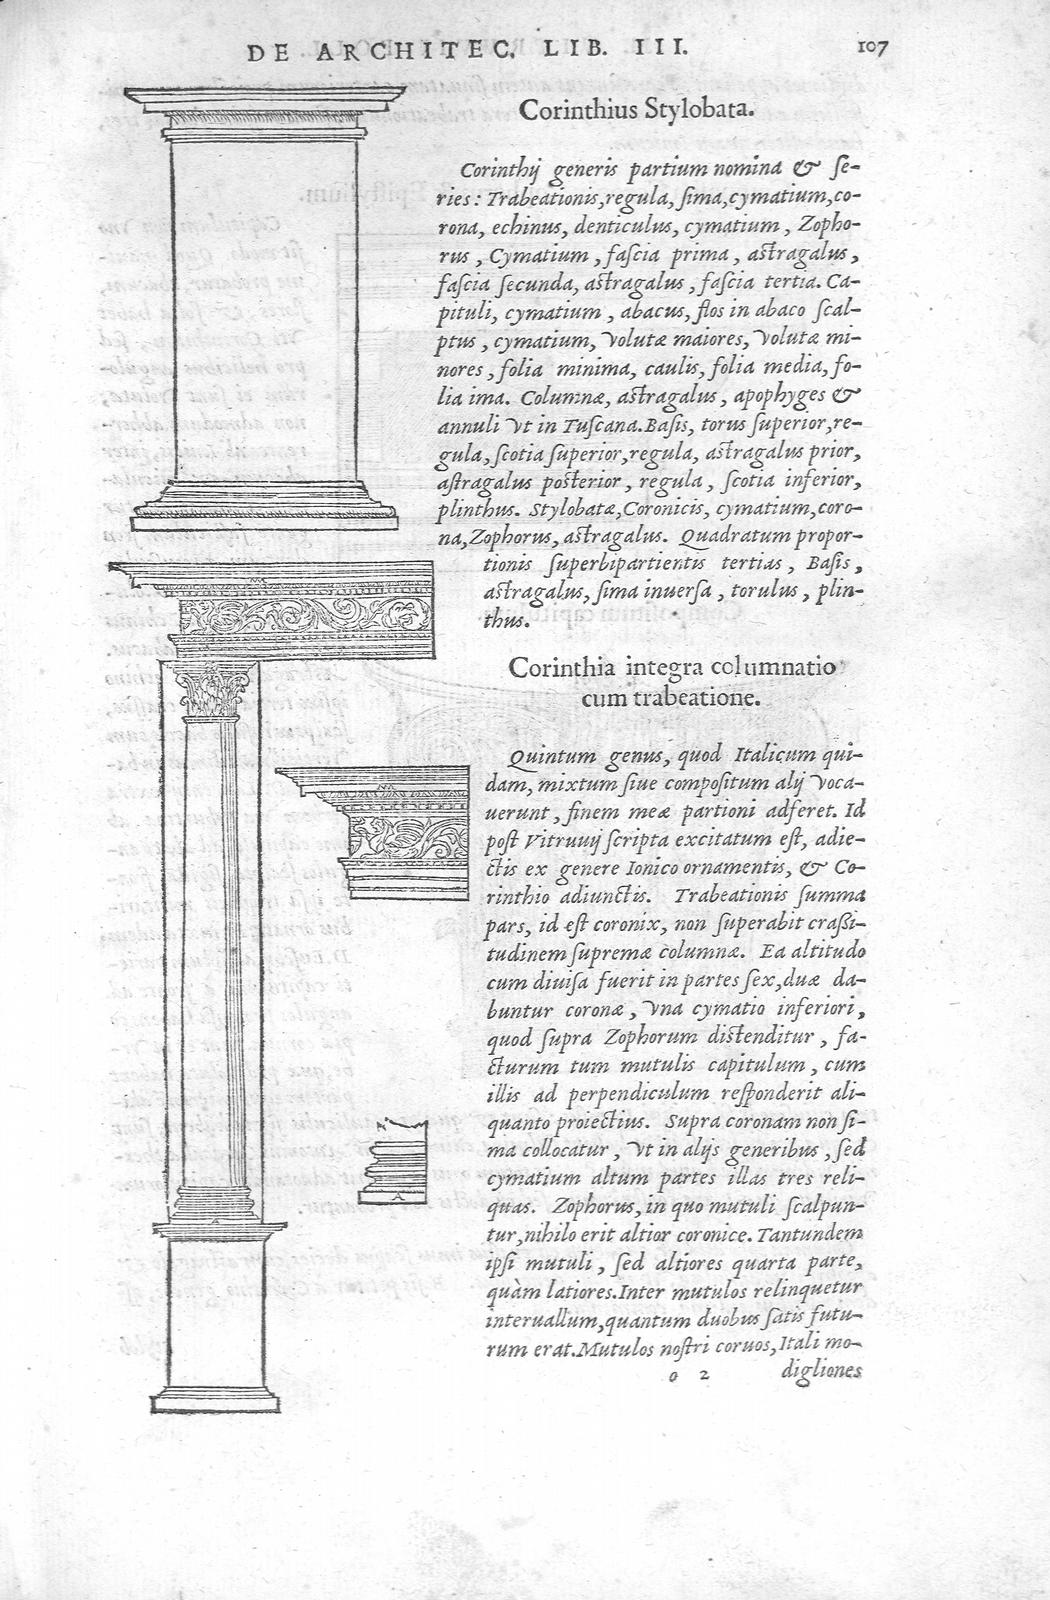 DE ARCHITEC. LIB. III. 107
Corinthius Stylobata.
Corinthij generis partium nomina & se-
ries: Trabeationis, regula, sima, cymatium, co-
rona, echinus, denticulus, cymatium, Zopho-
rus, Cymatium, fascia prima, astragalus,
fascia secunda, astragalus, fascia tertia. Ca-
pituli, cymatium, abacus, flos in abaco scal-
ptus, cymatium, volutæ maiores, volutæ mi-
nores, folia minima, caulis, folia media, fo-
lia ima. Columnæ, astragalus, apophyges &
annuli vt in Tuscana. Basis, torus superior, re-
gula, scotia superior, regula, astragalus prior,
astragalus posterior, regula, scotia inferior,
plinthus. Stylobatæ, Coronicis, cymatium, coro-
na, Zophorus, astragalus. Quadratum propor-
tionis superbipartientis tertias, Basis,
astragalus, sima inuersa, torulus, plin-
thus.
Corinthia integra columnatio
cum trabeatione.
Quintum genus, quod Italicum qui-
dam, mixtum siue compositum alij voca-
uerunt, finem meæ partioni adferet. Id
post Vitruuij scripta excitatum est, adie-
ctis ex genere Ionico ornamentis, & Co-
rinthio adiunctis. Trabeationis summa
pars, id est coronix, non superabit crassi-
tudinem supremæ columnæ. Ea altitudo
cum diuisa fuerit in partes sex, duæ da-
buntur coronæ, vna cymatio inferiori,
quod supra Zophorum distenditur, fa-
cturum tum mutulis capitulum, cum
illis ad perpendiculum responderit ali-
quanto proiectius. Supra coronam non si-
ma collocatur, vt in alijs generibus, sed
cymatium altum partes illas tres reli-
quas. Zophorus, in quo mutuli scalpun-
tur, nihilo erit altior coronice. Tantundem
ipsi mutuli, sed altiores quarta parte,
quàm latiores. Inter mutulos relinquetur
interuallum, quantum duobus satis futu-
rum erat. Mutulos nostri coruos, Itali mo-
o 2 digliones
A